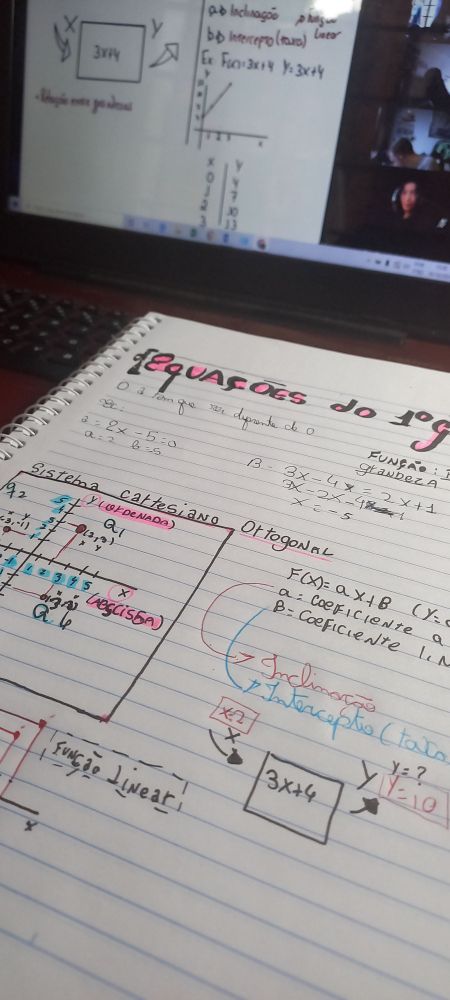 X
Y
3x+4
a → Inclinação
b → Intercepto (taxa)
Função Linear
Ex: F(x)=3x+4 Y=3x+4
Y
x
X Y
0 4
1 7
2 10
3 13
{Equações do 1º g
O a tem que ser diferente de 0
a = 2x - 5 = 0
a = 2 b = 5
B- 3x - 4 = 2x + 1
3x - 2x - 4
x = -5
Função:
grandeza
Sistema cartesiano Ortogonal
Y (ordenada)
5
Q1
(2,3)
x y
x
1 2 3 4 5
(abscissa)
F(x) = ax + B (Y=
a = coeficiente a
B = coeficiente lin
→ Inclinação
→ Intercepto (taxa
x=2
x
3x+4
Y
Y=?
Y=10
Função Linear
x